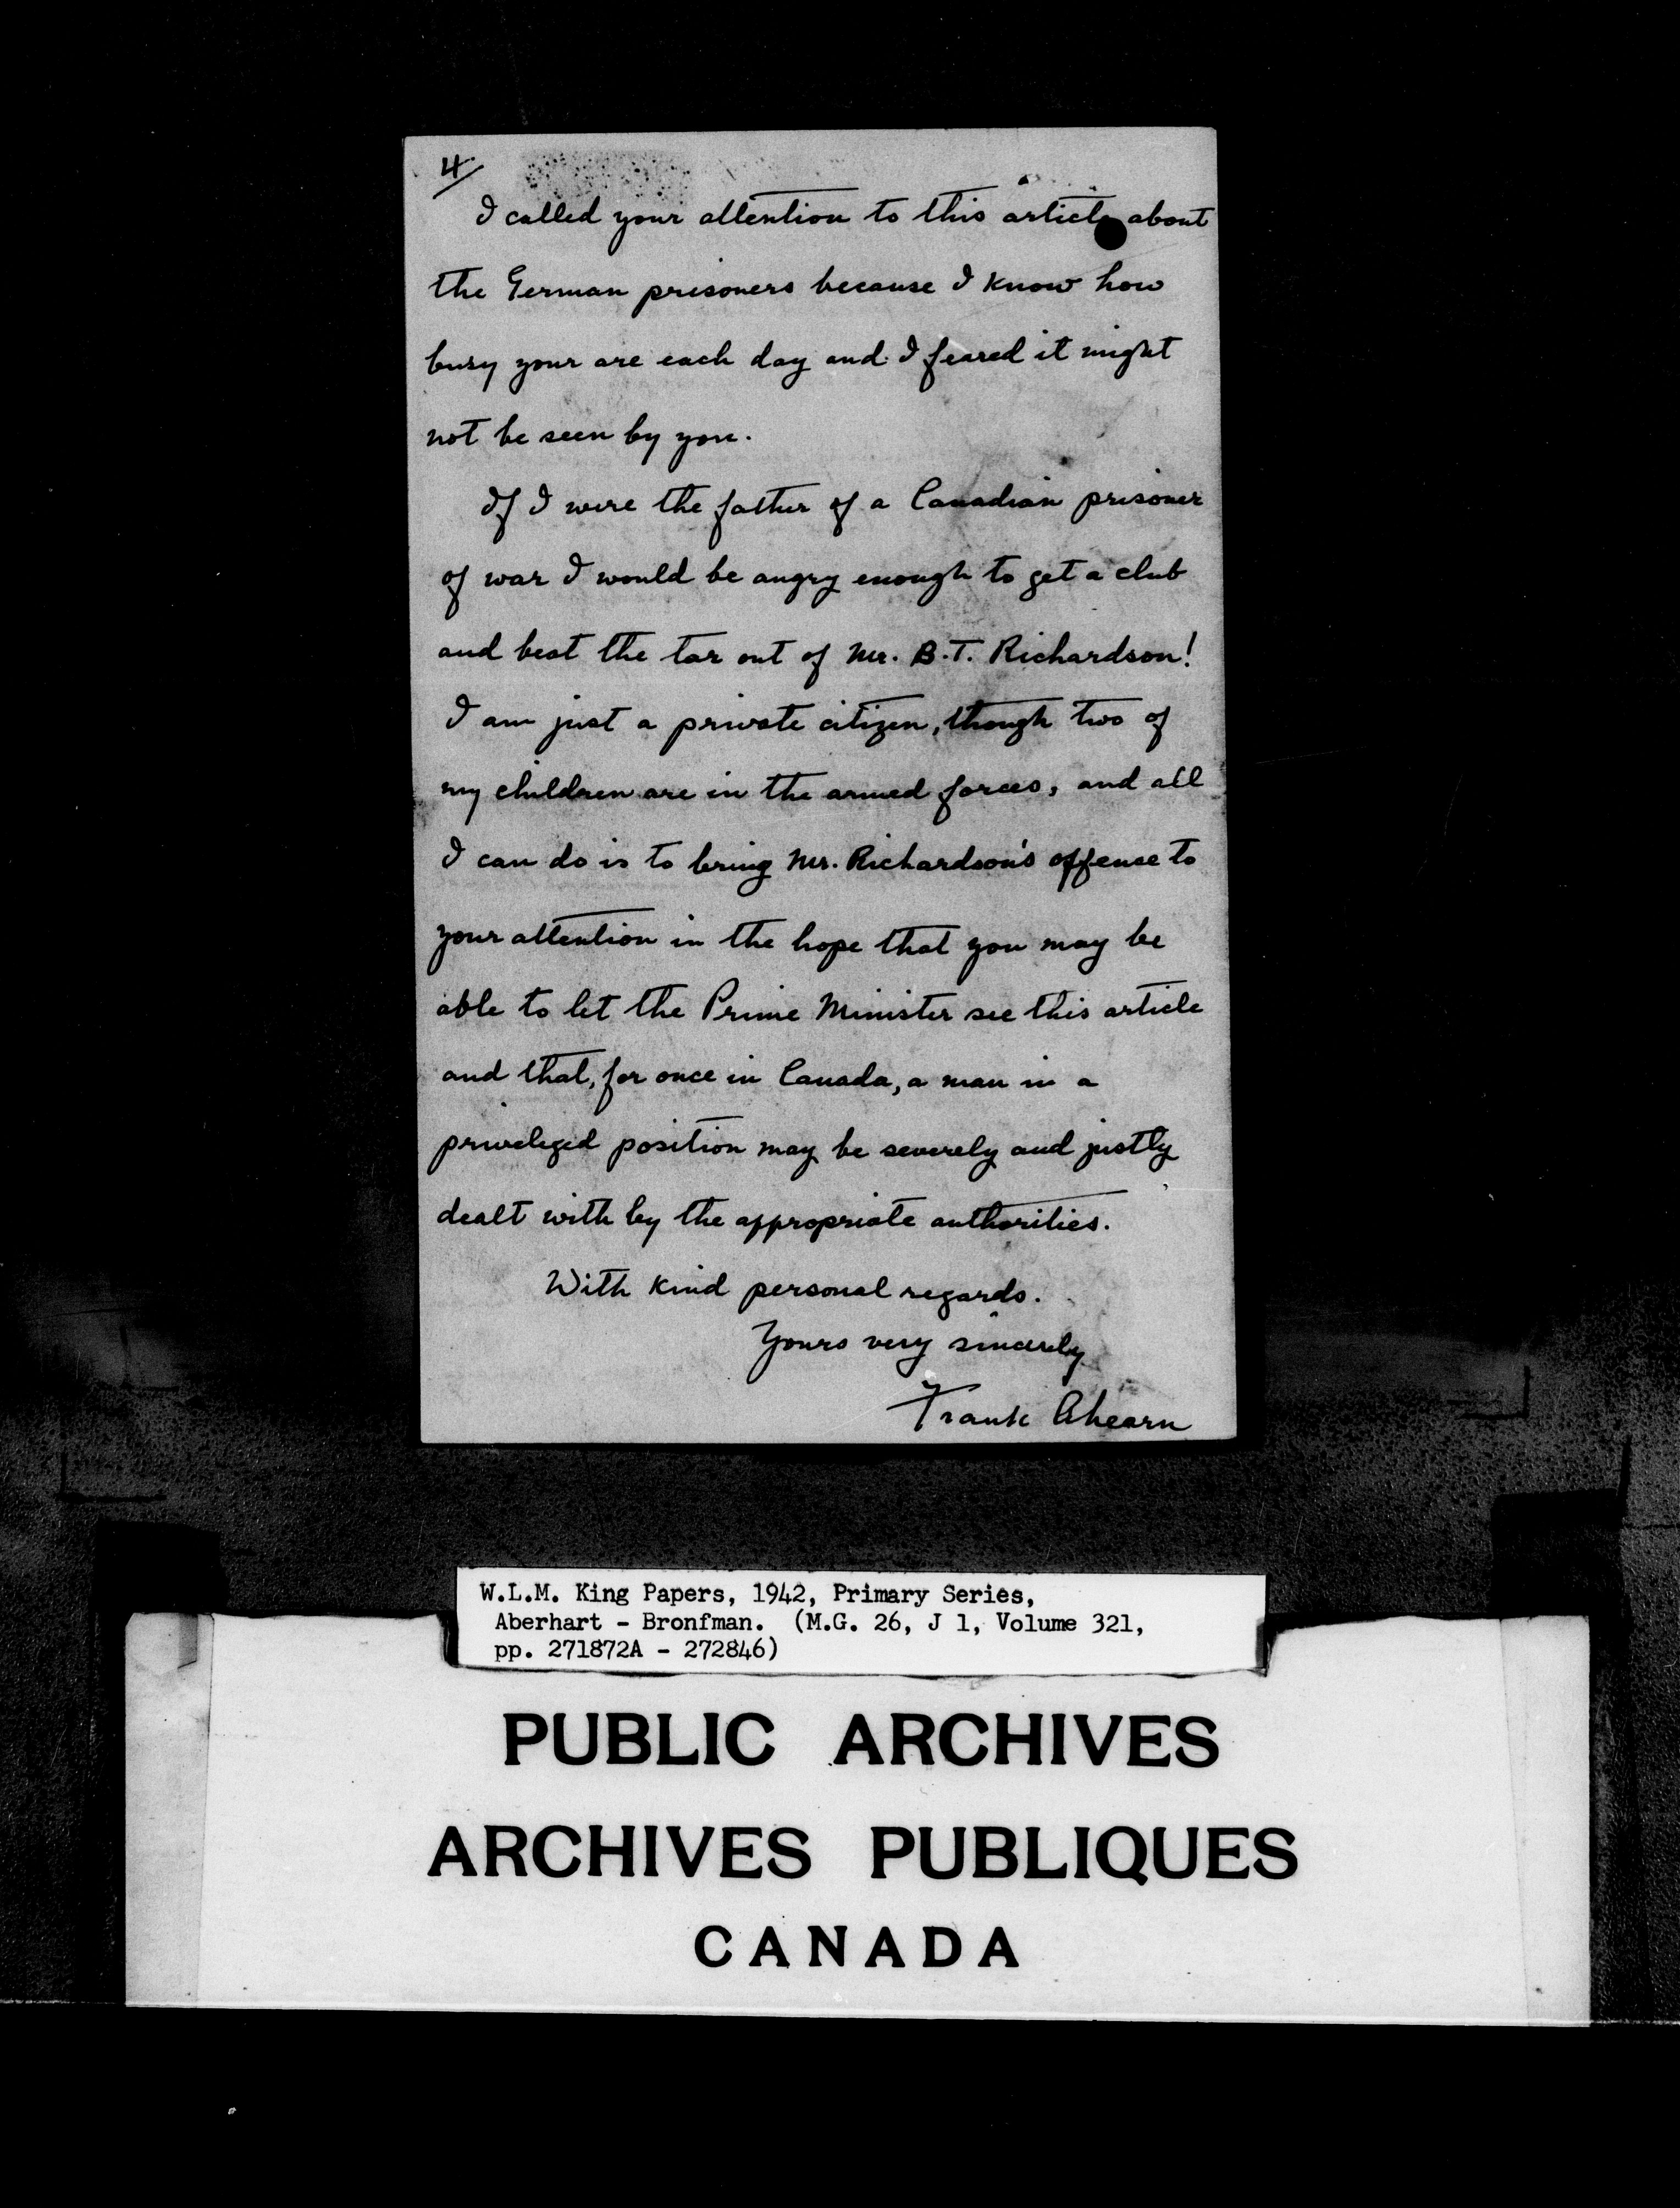 4/
I called your attention to this article about
the German prisoners because I know how
busy your are each day and I feared it might
not be seen by you.
If I were the father of a Canadian prisoner
of war I would be angry enough to get a club
and beat the tar out of Mr. B.T. Richardson!
I am just a private citizen, though two of
my children are in the armed forces, and all
I can do is to bring Mr. Richardson's offense to
your attention in the hope that you may be
able to let the Prime Minister see this article
and that, for once in Canada, a man in a
priveleged position may be severely and justly
dealt with by the appropriate authorities.
With kind personal regards.
Yours very sincerely
Frank Ahearn
W.L.M. King Papers, 1942, Primary Series,
Aberhart - Bronfman. (M.G. 26, J 1, Volume 321,
pp. 271872A - 272846)
PUBLIC ARCHIVES
ARCHIVES PUBLIQUES
CANADA